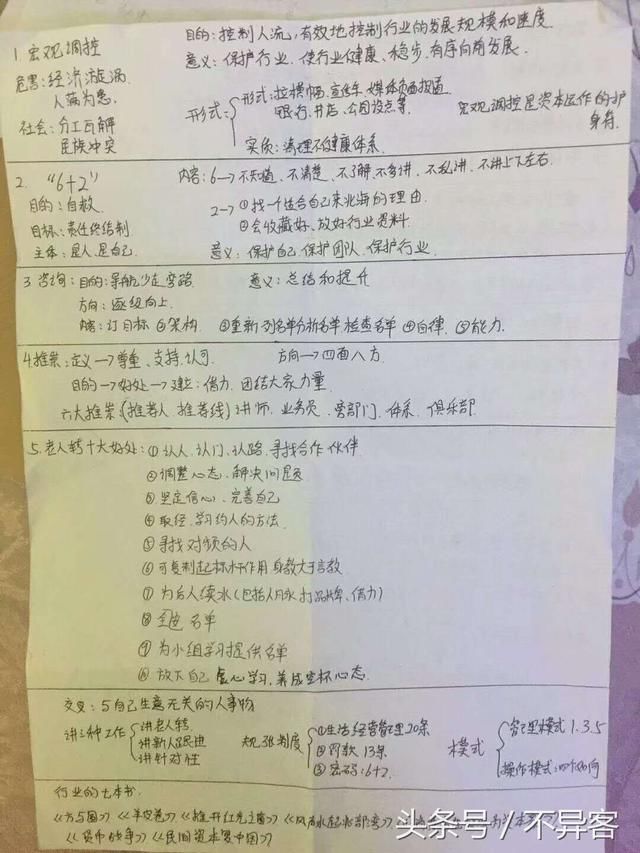 1. 宏观调控
目的:控制人流,有效地控制行业的发展规模和速度.
意义:保护行业、使行业健康、稳步、有序向前发展.
危害:经济漩涡
人满为患.
社会:分工瓦解
民族冲突
形式
形式:拉横幅.宣传车.媒体负面报道
银行、开店、公园设点等.
实质:清理不健康体系.
宏观调控是资本运作的护
身符.
2. “6+2”
目的:自救.
目标:责任终结制
主体:是人、是自己.
内容:6→不知道、不清楚、不了解、不多讲、不乱讲、不讲上下左右.
2→①找一个适合自己来北海的理由.
②会收藏好、放好行业资料
意义:保护自己.保护团队、保护行业.
3 咨询:目的:导航少走弯路. 意义:总结和提升
方向:逐级向上.
内容:订目标 ②架构. ③重新列名单分析名单 检查名单 ④自律. ⑤能力.
4.推崇:定义→尊重、支持、认可. 方向→四面八方.
目的→好处→建立:借力.团结大家力量.
六大推崇:(推荐人.推荐线)讲师.业务员.旁部门.体系.俱乐部.
5.老人转十大好处:①认人、认门、认路、寻找合作伙伴
②调整心态.解决问题
③坚定信心、完善自己
④取经.学习约人的方法.
⑤寻找对频的人
⑥可复制起标杆作用 身教大于言教
⑦为后人续水(包括人脉 打品牌、借力)
⑧ 名单
⑨为小组学习提供名单
⑩放下自己 虚心学习.养成空杯心态.
交叉:5自己生意无关的人事物
讲三种工作
讲老人转.
讲新人跟进
讲针对性
规张制度
①生活经营管理20条
②罚款13条
③密码:6+2.
模式
管理模式1.3.5
操作模式:四个如何
行业的七本书.
《羊皮卷》《推开红光之窗》《风声水起北部湾》
《货币战争》《民间资本 中国》
头条号/不异客